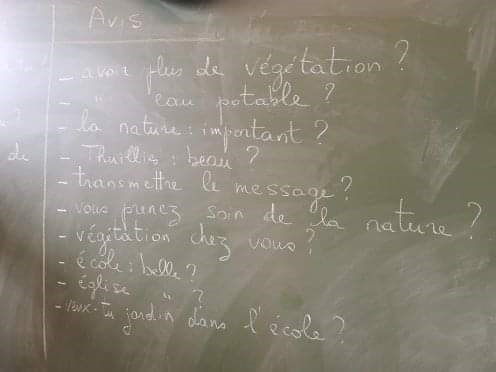 Avis
- avoir plus de végétation ?
- " eau potable ?
- la nature : important ?
- Thuillies : beau ?
- transmettre le message ?
- vous prenez soin de la nature ?
- végétation chez vous ?
- école : belle ?
- église " ?
- veux-tu jardin dans l'école ?
de